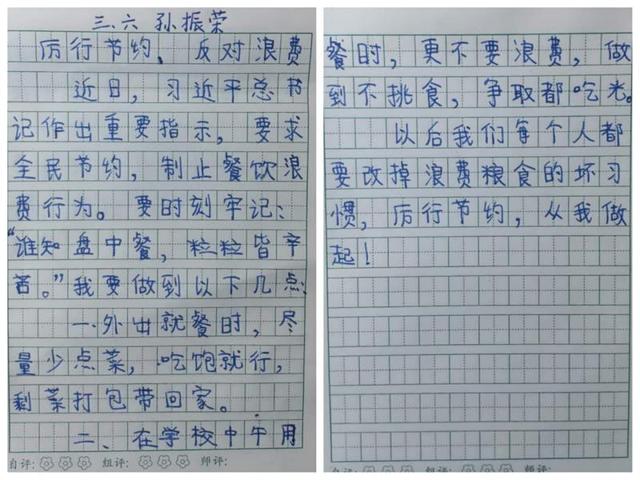 三.六 孙振荣
厉行节约、反对浪费
近日，习近平总书
记作出重要指示，要求
全民节约，制止餐饮浪
费行为。要时刻牢记：
“谁知盘中餐，粒粒皆辛
苦。”我要做到以下几点：
一.外出就餐时，尽
量少点菜，吃饱就行，
剩菜打包带回家。
二、在学校中午用
自评： 组评： 师评：
餐时，更不要浪费，做
到不挑食，争取都吃光。
以后我们每个人都
要改掉浪费粮食的坏习
惯，厉行节约，从我做
起！
自评： 组评： 师评：